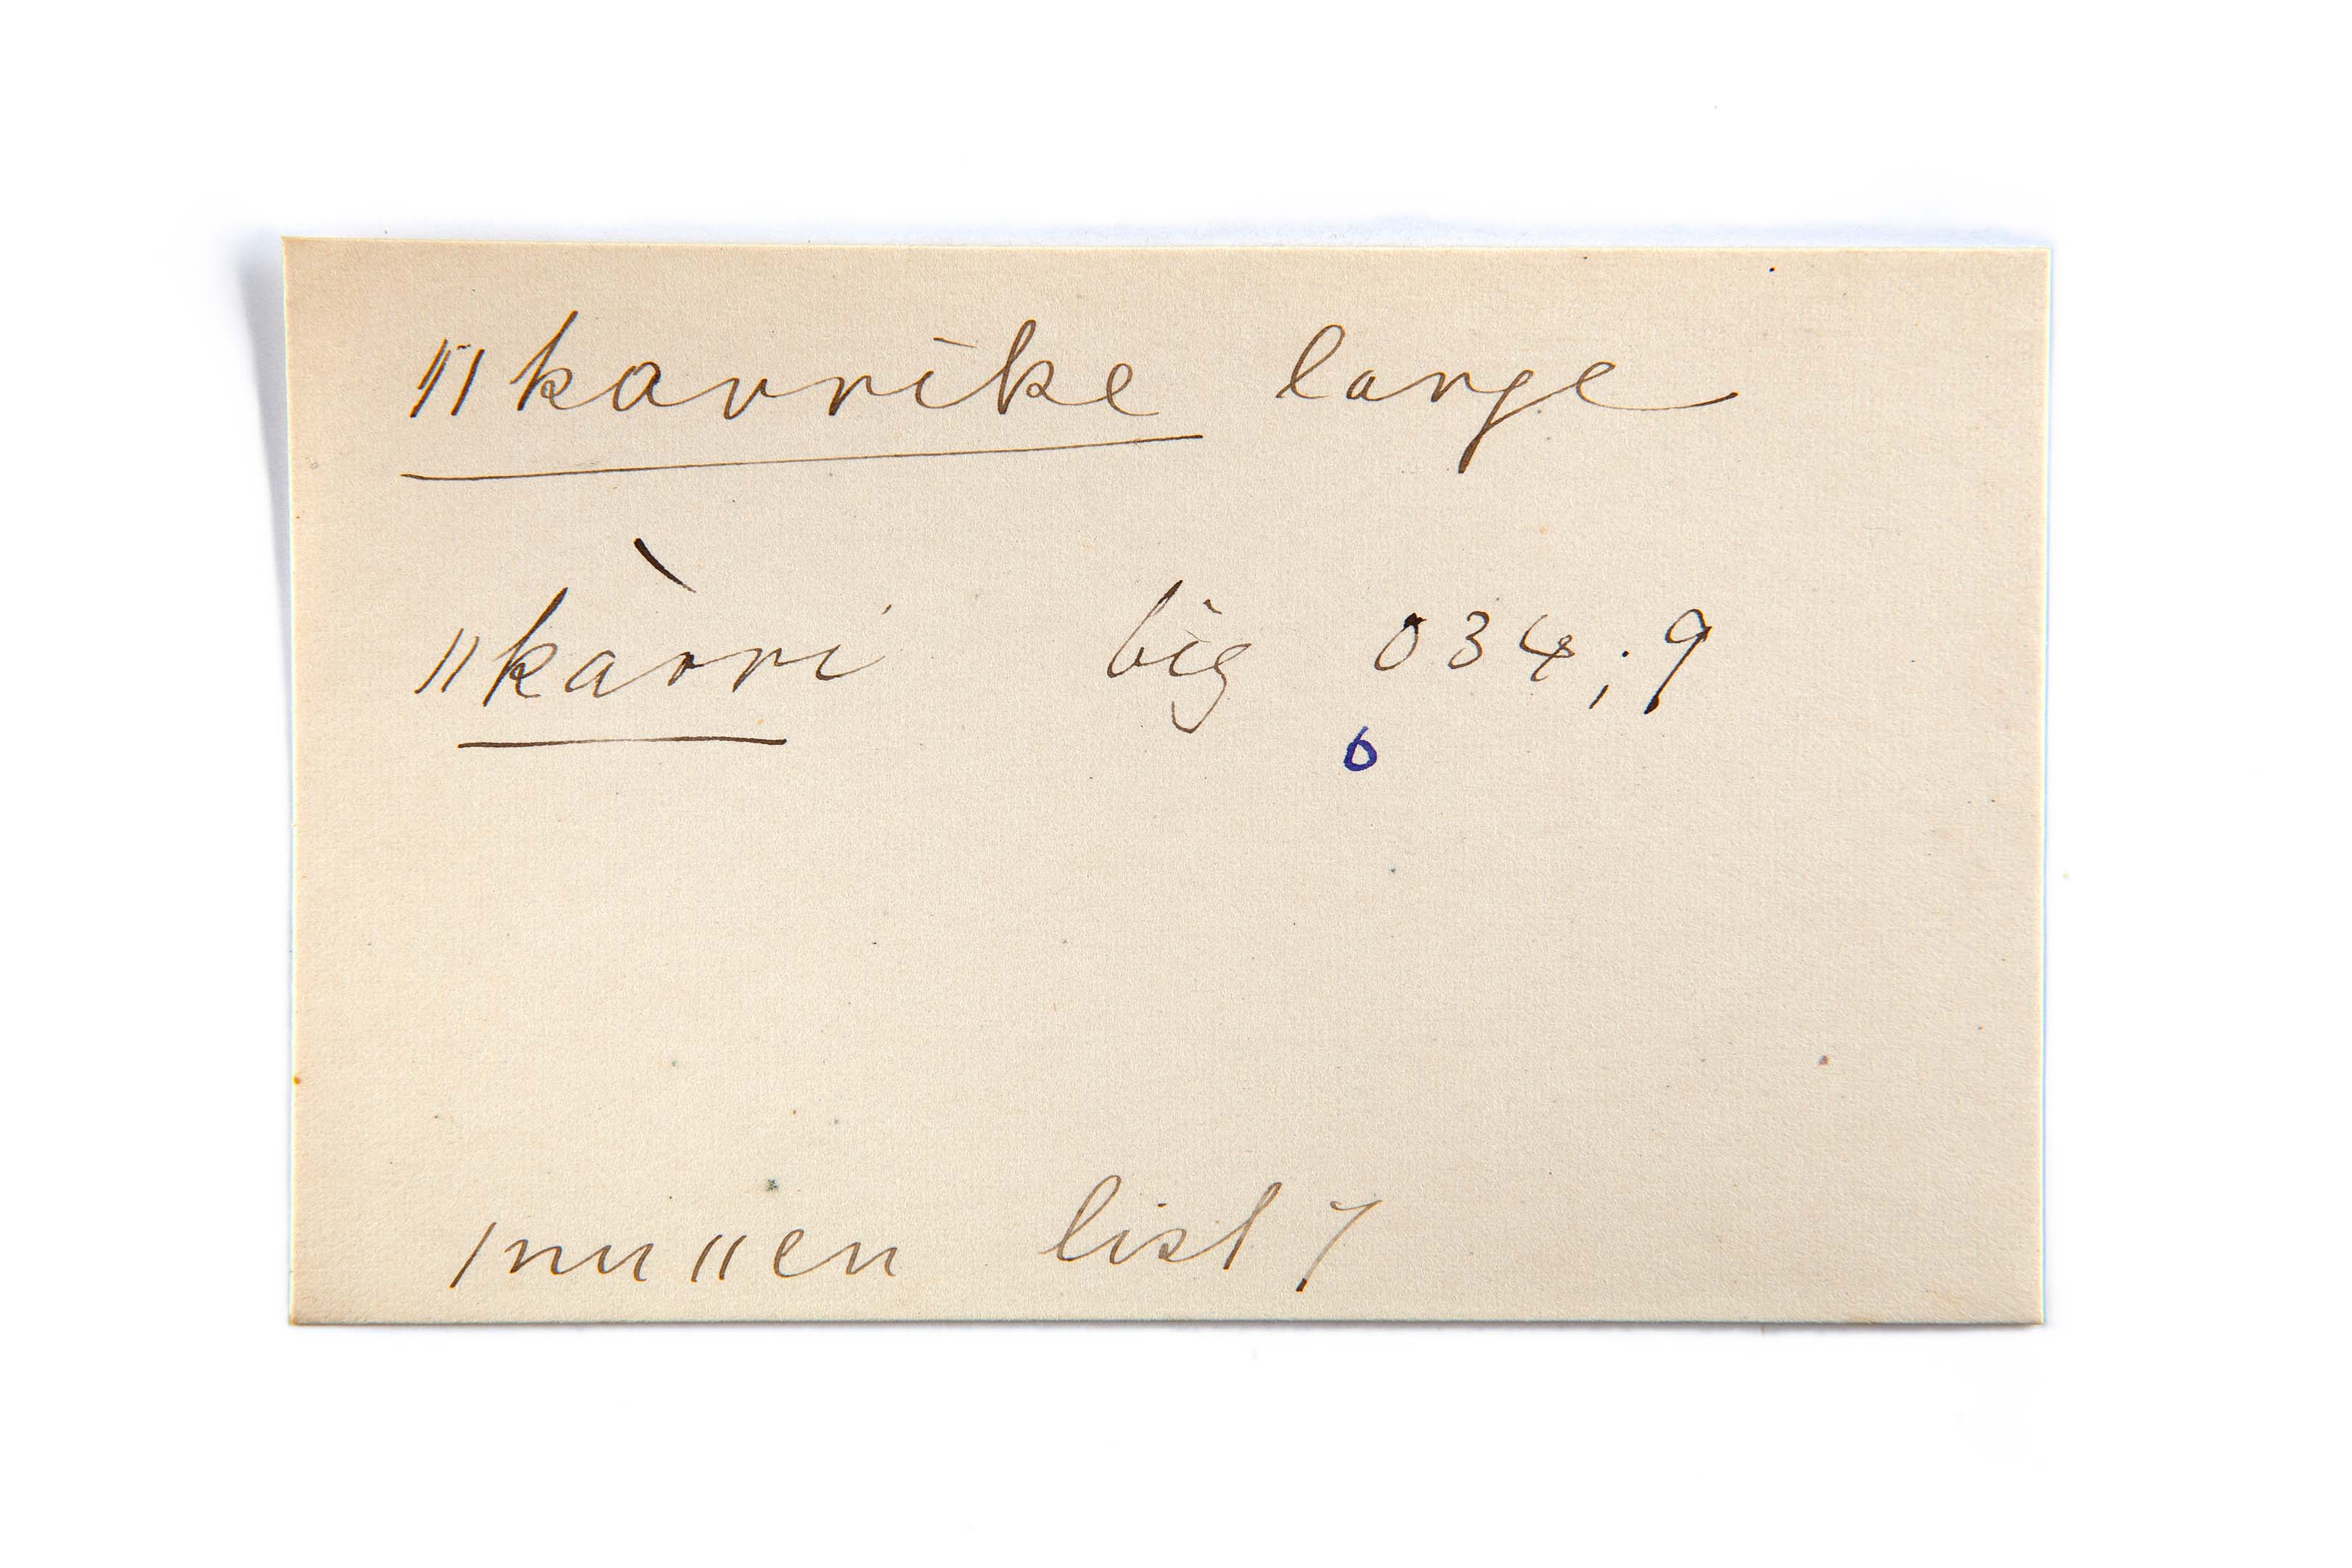 ǁkarrike large
ǁkàrri big 034;9
6
ǀnuǁen list 7